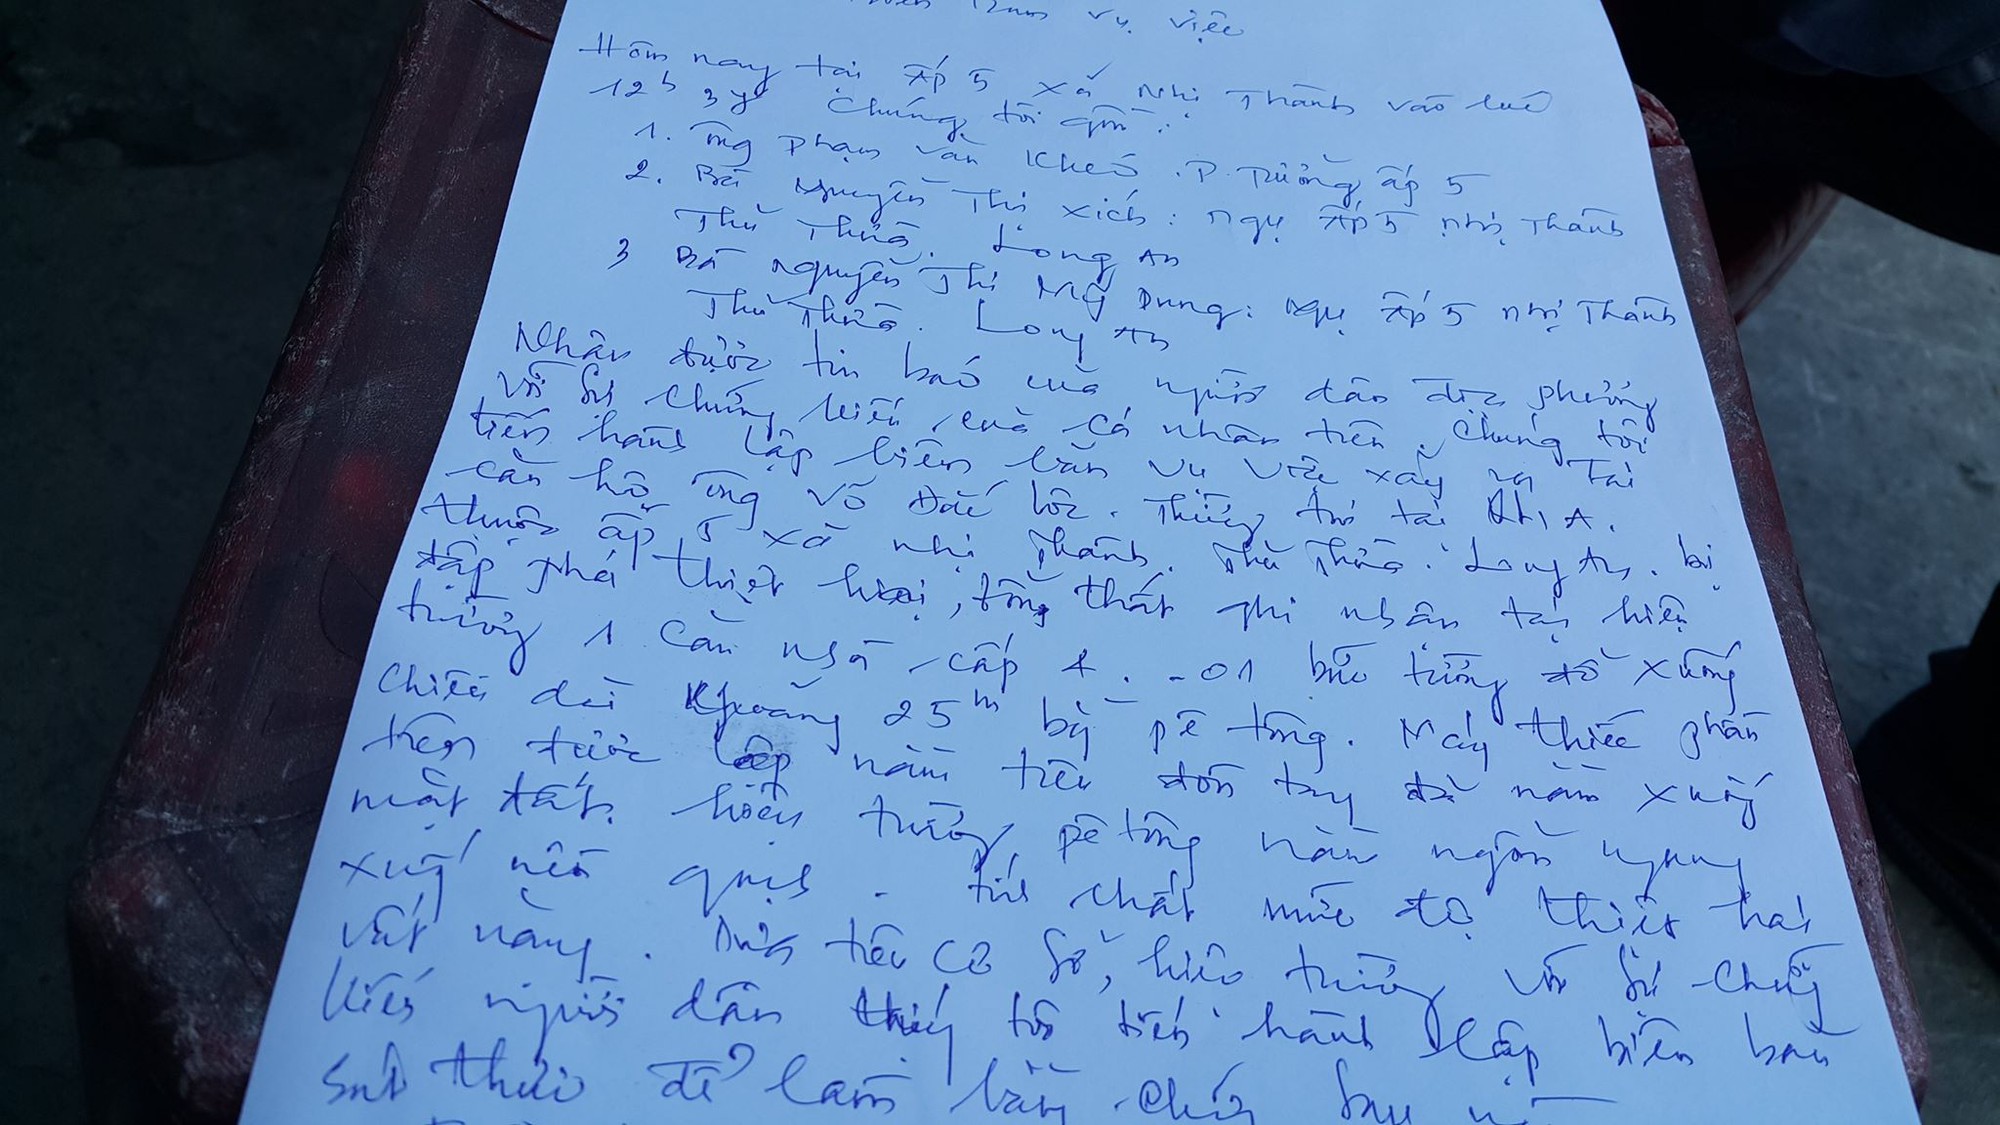 vụ việc
Hôm nay tại Ấp 5 xã Nhị Thành vào lúc
12h chúng tôi gồm:
1. Ông Phạm Văn Khéo. P. Trưởng ấp 5
2. Bà Nguyễn Thị Xích: ngụ Ấp 5 Nhị Thành
Thủ Thừa. Long An
3 Bà Nguyễn Thị Mỹ Dung: ngụ Ấp 5 Nhị Thành
Thủ Thừa. Long An
Nhận được tin báo của người dân địa phương
với sự chứng kiến của cá nhân trên. Chúng tôi
tiến hành lập biên bản vụ việc xảy ra tại
căn hộ ông Võ Đắc Lộc. Thường trú tại
thuộc ấp 5 xã Nhị Thành. Thủ Thừa. Long An. bị
đập phá thiệt hại, tổng thất ghi nhận tại hiện
trường 1 căn nhà cấp 4. - 01 bức tường đổ xuống
chiều dài khoảng 25m bằng pê tông. Máy thiếc phần
trên được lợp nằm trên đòn tay đã nằm xuống
mặt đất. hiện trường pê tông nằm ngổn ngang
xuống nền gạch. tính chất mức độ thiệt hại
rất nặng. Dựa trên cơ sở, hiện trường với sự chứng
kiến người dân chúng tôi tiến hành lập biên bản
thức để làm bằng chứng sau